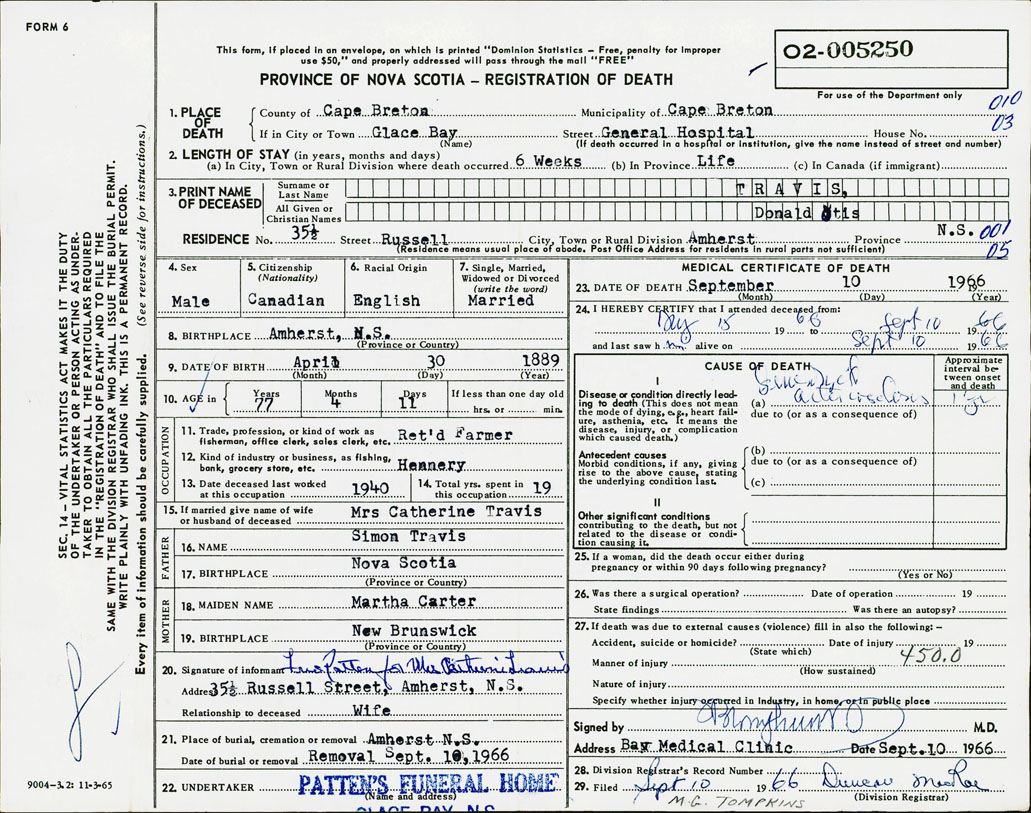 FORM 6
This form, if placed in an envelope, on which is printed "Dominion Statistics – Free, penalty for improper
use $50," and properly addressed will pass through the mail "FREE"
PROVINCE OF NOVA SCOTIA – REGISTRATION OF DEATH
02-005250
For use of the Department only
010
03
1. PLACE OF DEATH
County of Cape Breton Municipality of Cape Breton
If in City or Town Glace Bay Street General Hospital House No.
(Name) (If death occurred in a hospital or institution, give the name instead of street and number)
2. LENGTH OF STAY (in years, months and days)
(a) In City, Town or Rural Division where death occurred 6 Weeks (b) In Province Life (c) In Canada (if immigrant)
3. PRINT NAME OF DECEASED
Surname or Last Name TRAVIS,
All Given or Christian Names Donald Otis
RESIDENCE No. 35½ Street Russell City, Town or Rural Division Amherst Province N.S. 001
(Residence means usual place of abode. Post Office Address for residents in rural parts not sufficient) 05
4. Sex Male
5. Citizenship (Nationality) Canadian
6. Racial Origin English
7. Single, Married, Widowed or Divorced (write the word) Married
8. BIRTHPLACE Amherst, N.S.
(Province or Country)
9. DATE OF BIRTH April 30 1889
(Month) (Day) (Year)
10. AGE in Years 77 Months 4 Days 11 If less than one day old hrs. or min.
OCCUPATION
11. Trade, profession, or kind of work as
fisherman, office clerk, sales clerk, etc. Ret'd Farmer
12. Kind of industry or business, as fishing,
bank, grocery store, etc. Hennery
13. Date deceased last worked at this occupation 1940
14. Total yrs. spent in this occupation 19
15. If married give name of wife
or husband of deceased Mrs Catherine Travis
FATHER
16. NAME Simon Travis
17. BIRTHPLACE Nova Scotia
(Province or Country)
MOTHER
18. MAIDEN NAME Martha Carter
19. BIRTHPLACE New Brunswick
(Province or Country)
20. Signature of informant Patten for Mrs Catherine Travis
Address 35½ Russell Street, Amherst, N.S.
Relationship to deceased Wife
21. Place of burial, cremation or removal Amherst N.S.
Date of burial or removal Removal Sept. 10, 1966
22. UNDERTAKER PATTEN'S FUNERAL HOME
(Name and address)
GLACE BAY, N.S.
MEDICAL CERTIFICATE OF DEATH
23. DATE OF DEATH September 10 1966
(Month) (Day) (Year)
24. I HEREBY CERTIFY that I attended deceased from:
15 1966 to Sept 10 1966
and last saw him alive on Sept 10 1966
CAUSE OF DEATH
Approximate interval between onset and death
I
Disease or condition directly leading
to death (This does not mean
the mode of dying, e.g., heart failure,
asthenia, etc. It means the
disease, injury, or complication
which caused death.)
(a) arteriosclerosis
due to (or as a consequence of)
Antecedent causes
Morbid conditions, if any, giving
rise to the above cause, stating
the underlying condition last.
(b)
due to (or as a consequence of)
(c)
II
Other significant conditions
contributing to the death, but not
related to the disease or condition
causing it.
25. If a woman, did the death occur either during
pregnancy or within 90 days following pregnancy?
(Yes or No)
26. Was there a surgical operation? Date of operation 19
State findings Was there an autopsy?
27. If death was due to external causes (violence) fill in also the following: –
Accident, suicide or homicide? Date of injury 19
(State which)
450.0
Manner of injury
(How sustained)
Nature of injury
Specify whether injury occurred in Industry, in home, or in public place
Signed by M.D.
Address Bay Medical Clinic Date Sept. 10 1966
28. Division Registrar's Record Number
29. Filed Sept 10 1966 Duncan MacRae
M.G. TOMPKINS (Division Registrar)
SEC. 14 – VITAL STATISTICS ACT MAKES IT THE DUTY
OF THE UNDERTAKER OR PERSON ACTING AS UNDERTAKER
TO OBTAIN ALL THE PARTICULARS REQUIRED
IN THE "REGISTRATION OF DEATH" AND TO FILE THE
SAME WITH THE DIVISION REGISTRAR WHO SHALL ISSUE THE BURIAL PERMIT.
WRITE PLAINLY WITH UNFADING INK. THIS IS A PERMANENT RECORD.
Every item of information should be carefully supplied. (See reverse side for instructions.)
9004-3.2: 11-3-65